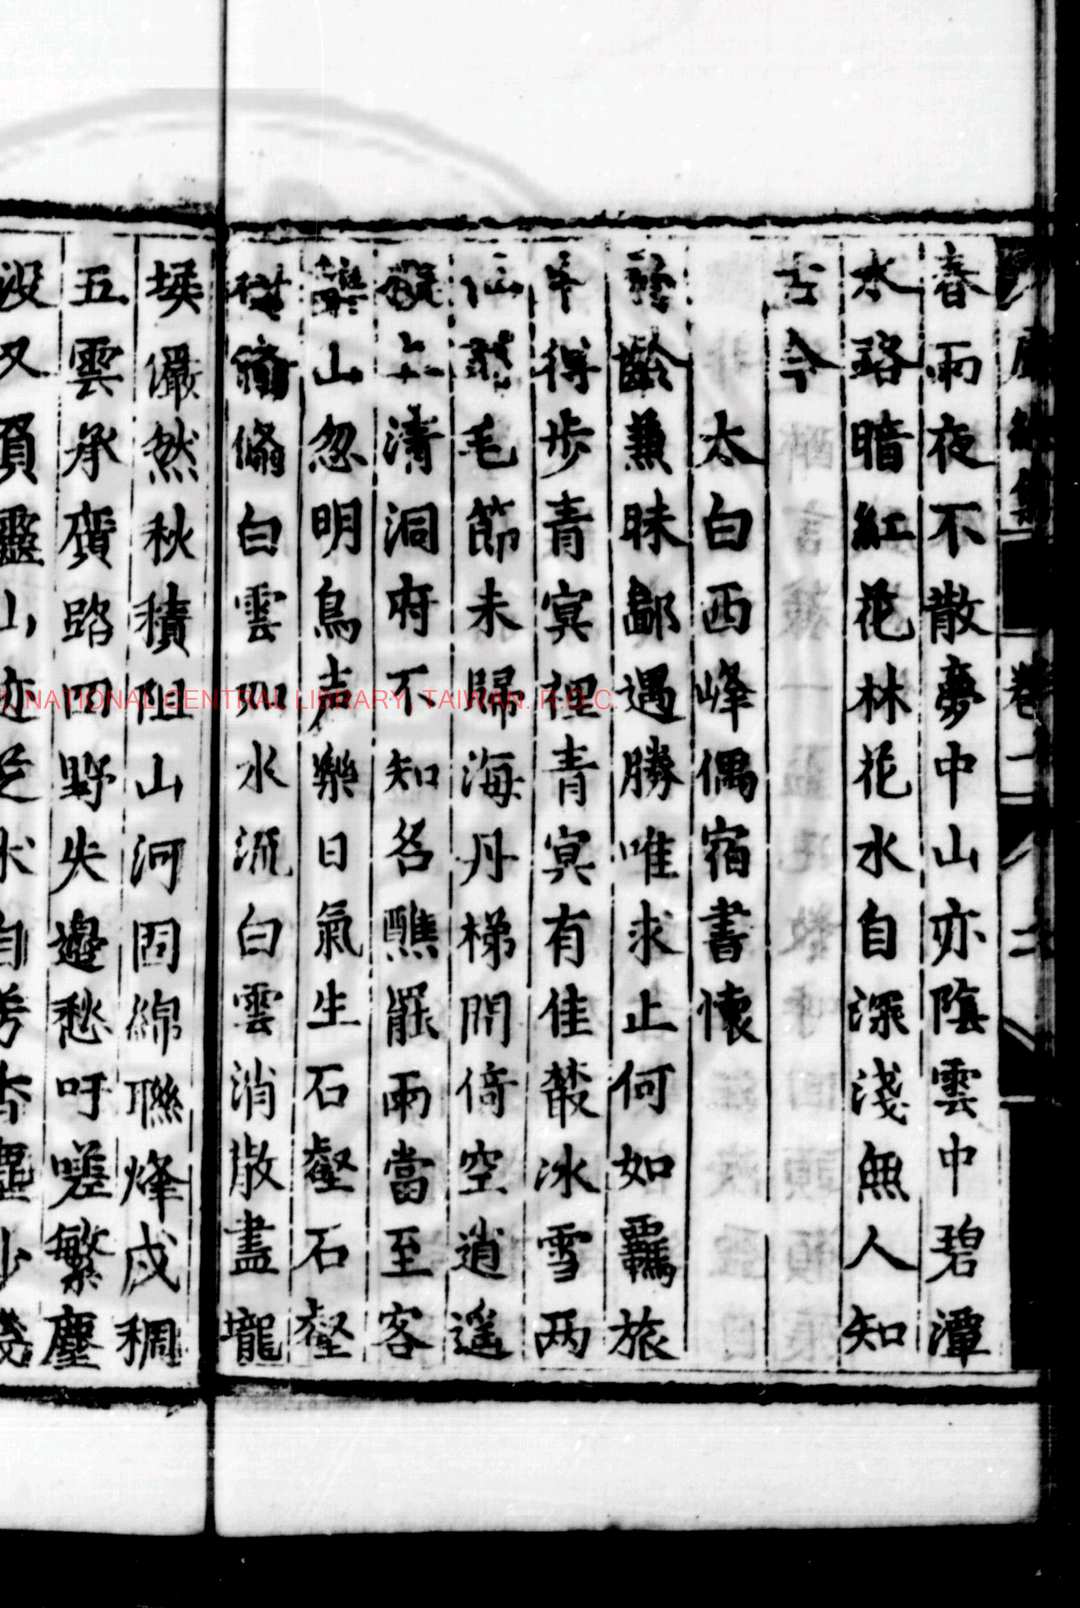 春雨夜不散夢中山亦隂雲中碧潭
水路暗紅花林花水自深淺無人知
古今
太白西峰偶宿書懷
齡兼昧鄙遇勝唯求止何如羈旅
得步青冥裡青冥有佳藂冰雪两
仙毛節未歸海丹梯閒倚空逍遥
凝上清洞府不知名醮罷雨當至客
藥山忽明鳥声樂日氣生石壑石壑
翛白雲如水流白雲消散盡壠
堠儼然秋積阻山河固綿聯烽戍稠
五雲承賔路四野失邉愁吁嗟繁塵
没又負靈山
NATIONAL CENTRAL LIBRARY, TAIWAN. R.O.C.